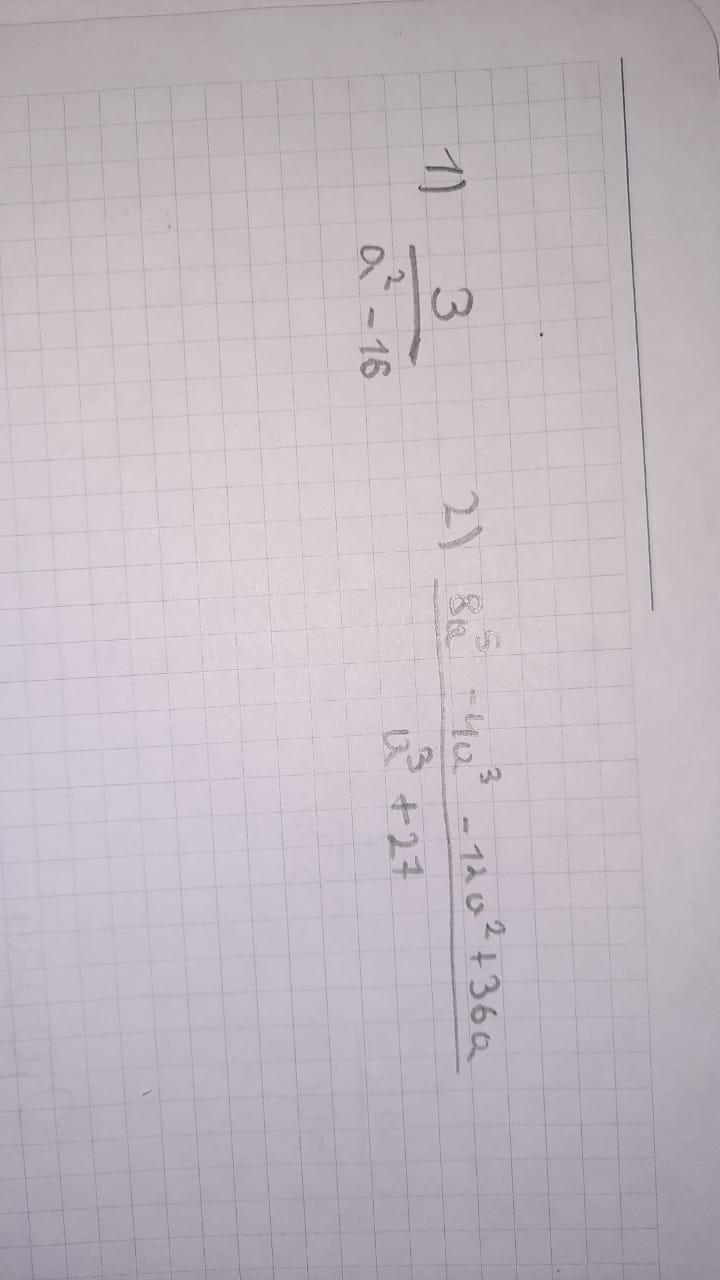 1) 3 / (a² - 16)
2) (8a⁵ - 4a³ - 12a² + 36a) / (a³ + 27)